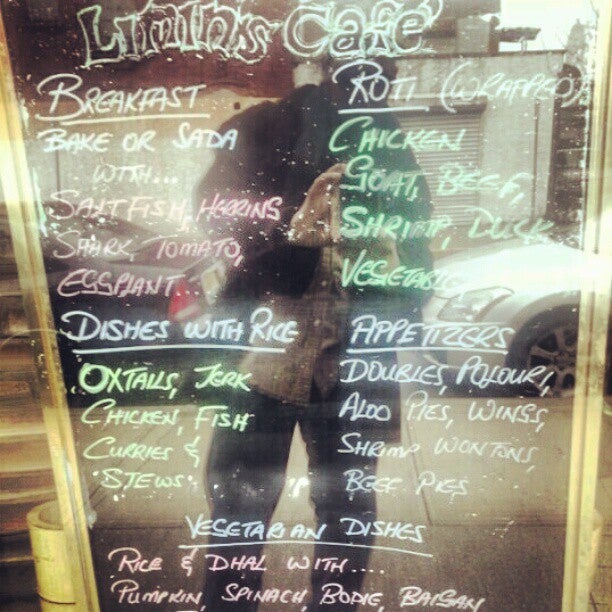 Limin's Café
BREAKFAST
BAKE OR SADA
WITH...
SALTFISH, HERRINS
SHARK, TOMATO,
EGGPLANT
DISHES WITH RICE
OXTAILS, JERK
CHICKEN, FISH
CURRIES &
STEWS
ROTI (WRAPPED)
CHICKEN
GOAT, BEEF,
SHRIMP, DUCK
VEGETABLE
APPETIZERS
DOUBLES, POLOURI,
ALOO PIES, WINGS,
SHRIMP WONTONS,
BEEF PIES
VEGETARIAN DISHES
RICE & DHAL WITH....
PUMPKIN, SPINACH, BODIE, BAIGAN